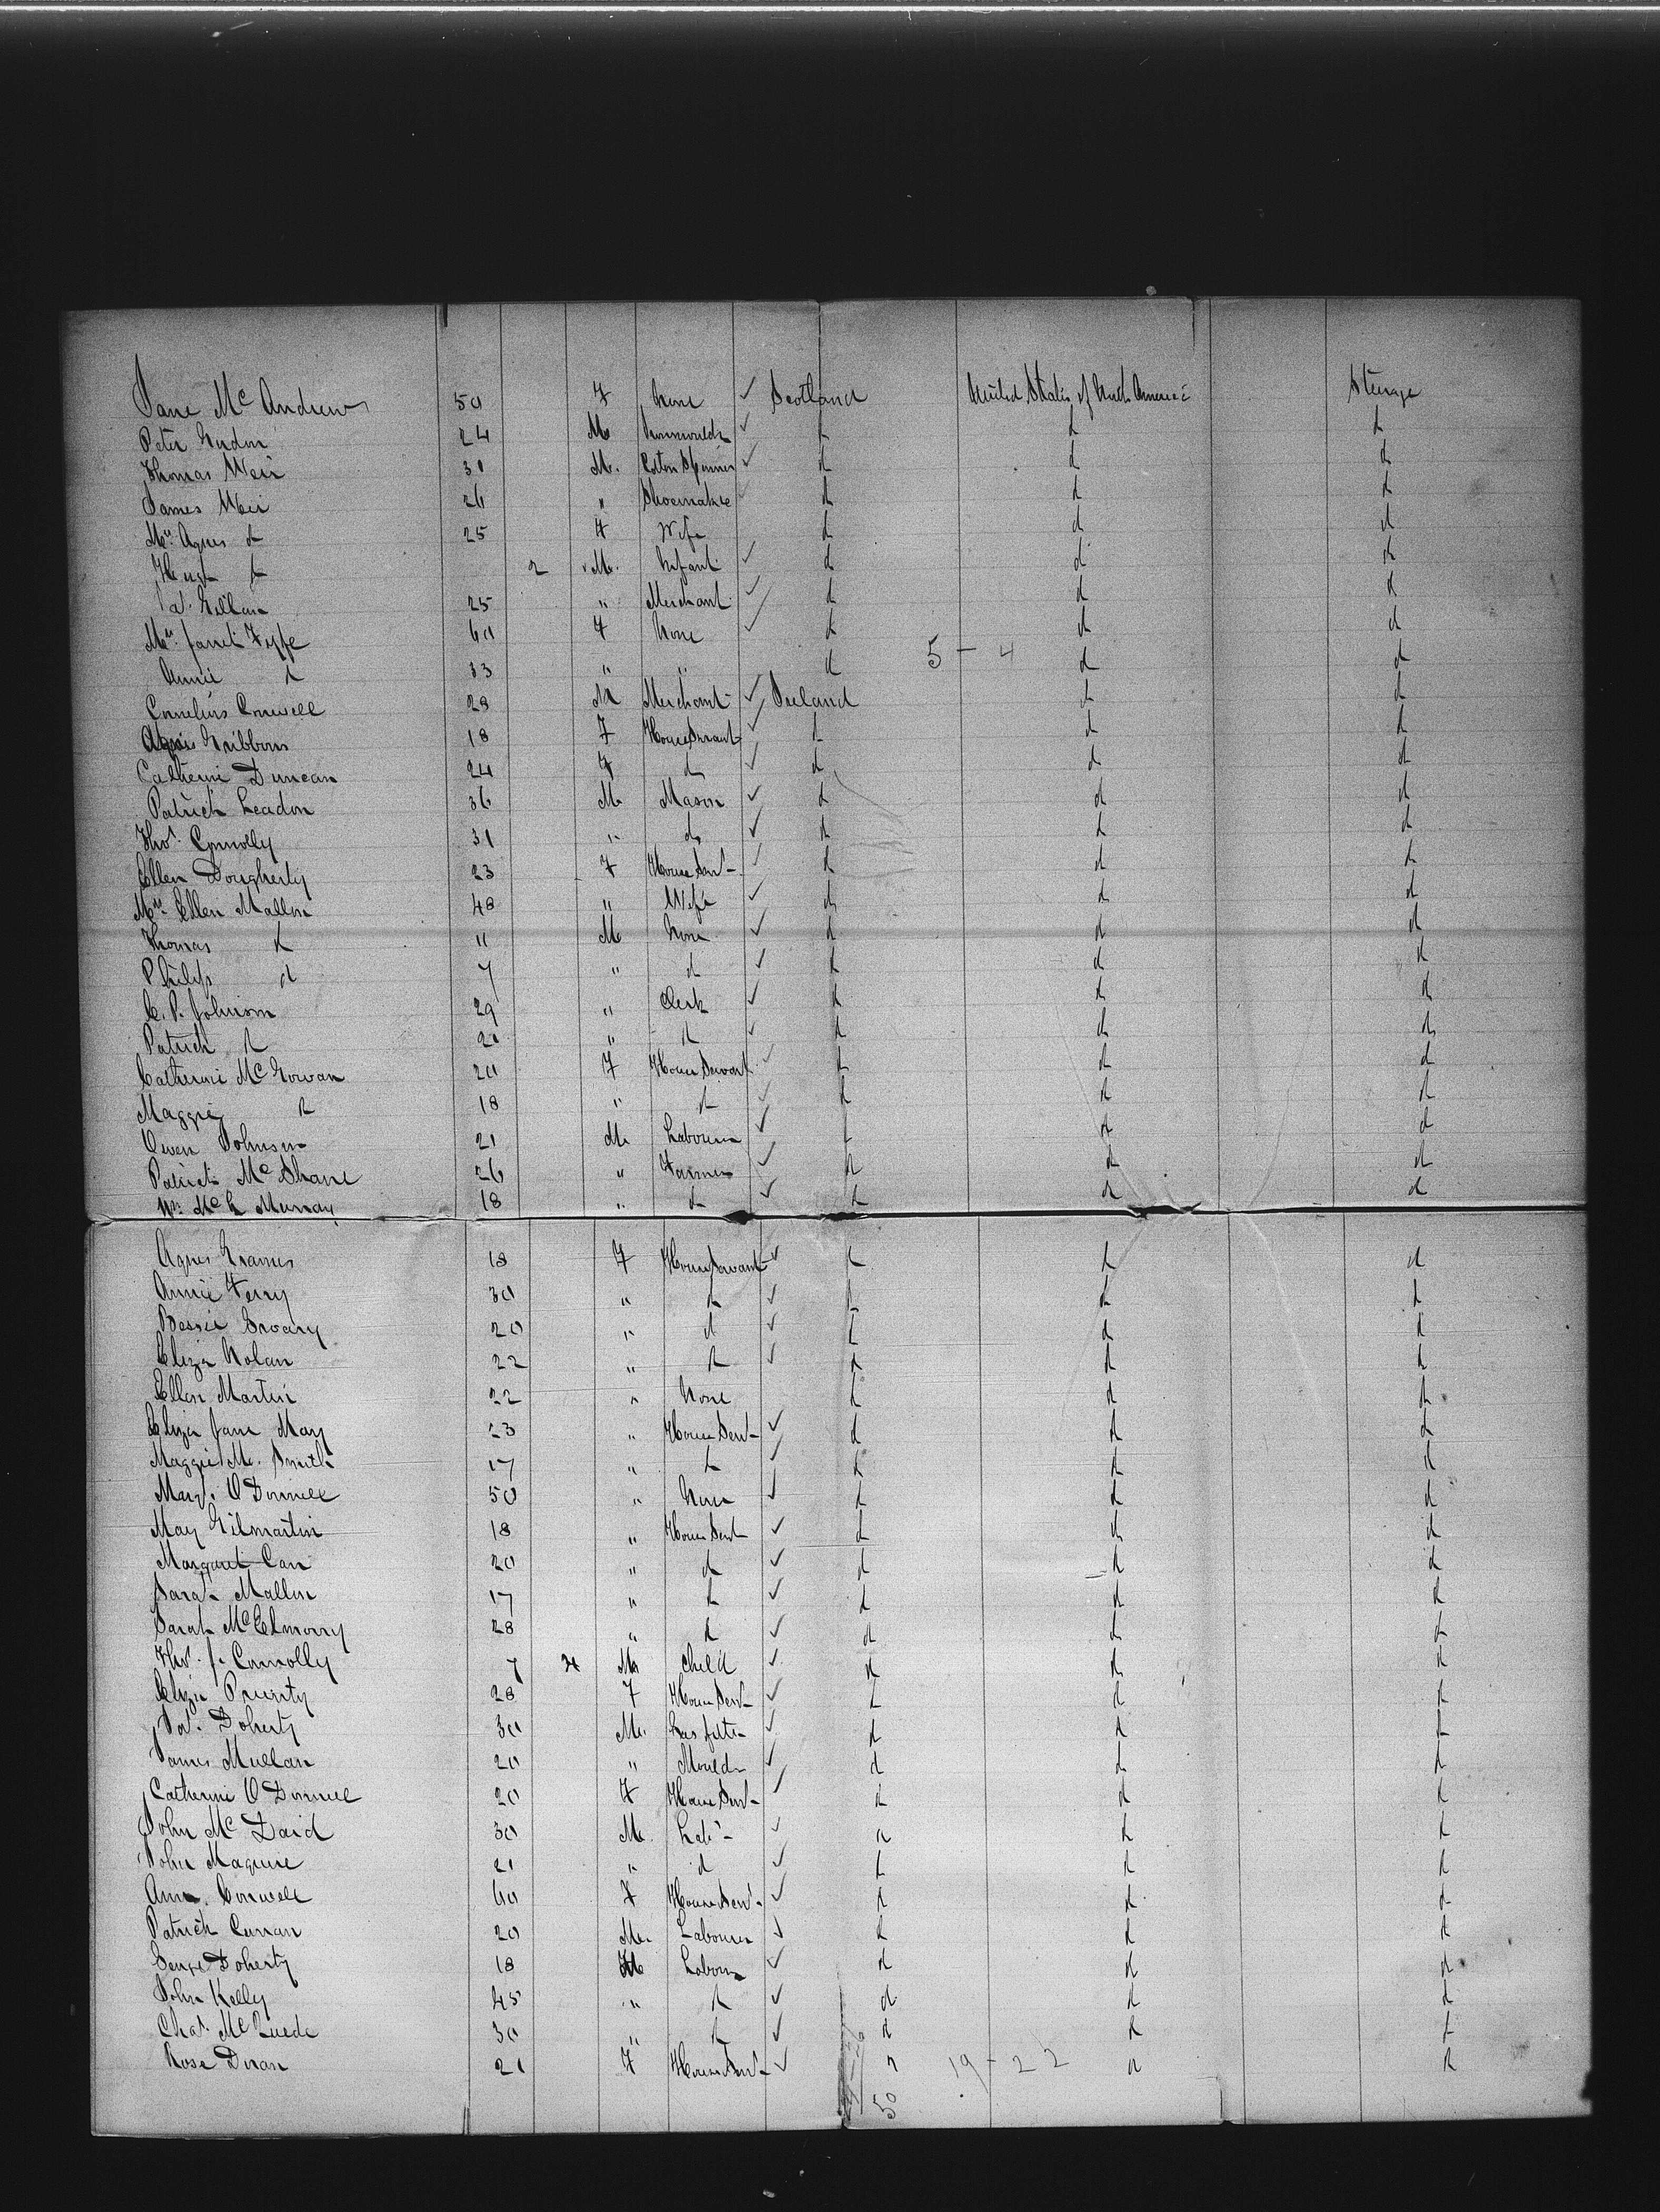 Jane Mc Andrews 50 F None ✓ Scotland United States of North America Steerage
Peter 24 M ✓ d d d
Thomas Weir 31 M. Cotton Spinner ✓ d d d
James Weir 26 " Shoemaker ✓ d d d
Mrs. Agnes d 25 F Wife d d d
Hugh d 2 M. Infant ✓ d d d
25 " Merchant ✓ d d d
Mrs. Janet Fyffe 60 F None ✓ d d d
Annie d 33 " " d 5 - 4 d d
Cornelius Conwell 28 M Merchant ✓ Ireland d d
Gribbons 18 F House Servant ✓ d d d
Catherine Duncan 24 F d ✓ d d d
Patrick Leadon 36 M Mason ✓ d d d
Thos. Connolly 31 " do ✓ d d d
Ellen Dougherty 23 F House Servt ✓ d d d
Mrs. Ellen Mallon 48 " Wife ✓ d d d
Thomas d 11 M None ✓ d d d
Philip d 7 " d ✓ d d d
Johnson 29 " Clerk ✓ d d d
Patrick d " d ✓ d d d
Catherine McGowan 20 F House Servant ✓ d d d
Maggie d 18 " d ✓ d d d
Owen Johnson 21 M Labourer ✓ d d d
Patrick McShane 26 " Farmer ✓ d d d
Murray 18 " d ✓ d d d
Agnes 18 F House Servant ✓ d d d
Annie Ferry 30 " d ✓ d d d
Bessie 20 " d ✓ d d d
Eliza Nolan 22 " d ✓ d d d
Ellen Martin 22 " None d d d
Eliza Jane May 23 " House Servt ✓ d d d
Maggie M. Smith 17 " d ✓ d d d
Margt. O'Donnell 50 " None ✓ d d d
May Gilmartin 18 " House Servt ✓ d d d
Margaret Carr 20 " d ✓ d d d
Sarah Mallon 17 " d ✓ d d d
Sarah McElmorry 28 " d ✓ d d d
Thos. J. Connolly 7 M Child ✓ d d d
Eliza 28 F House Servt ✓ d d d
Pat. Doherty 30 M. Gas fitter ✓ d d d
James Mullan 20 " Moulder ✓ d d d
Catherine O'Donnell 20 F House Servt ✓ d d d
John McDaid 30 M. Labr ✓ d d d
John Maguire 21 " d ✓ d d d
Ann Conwell 60 F House Servt ✓ d d d
Patrick Curran 20 M. Labourer ✓ d d d
George Doherty 18 M Labourer ✓ d d d
John Kelly 45 " d ✓ d d d
Chas. McQuede 30 " d ✓ d d d
Rose Doran 21 F House Servt ✓ d 19 - 22 d d
50